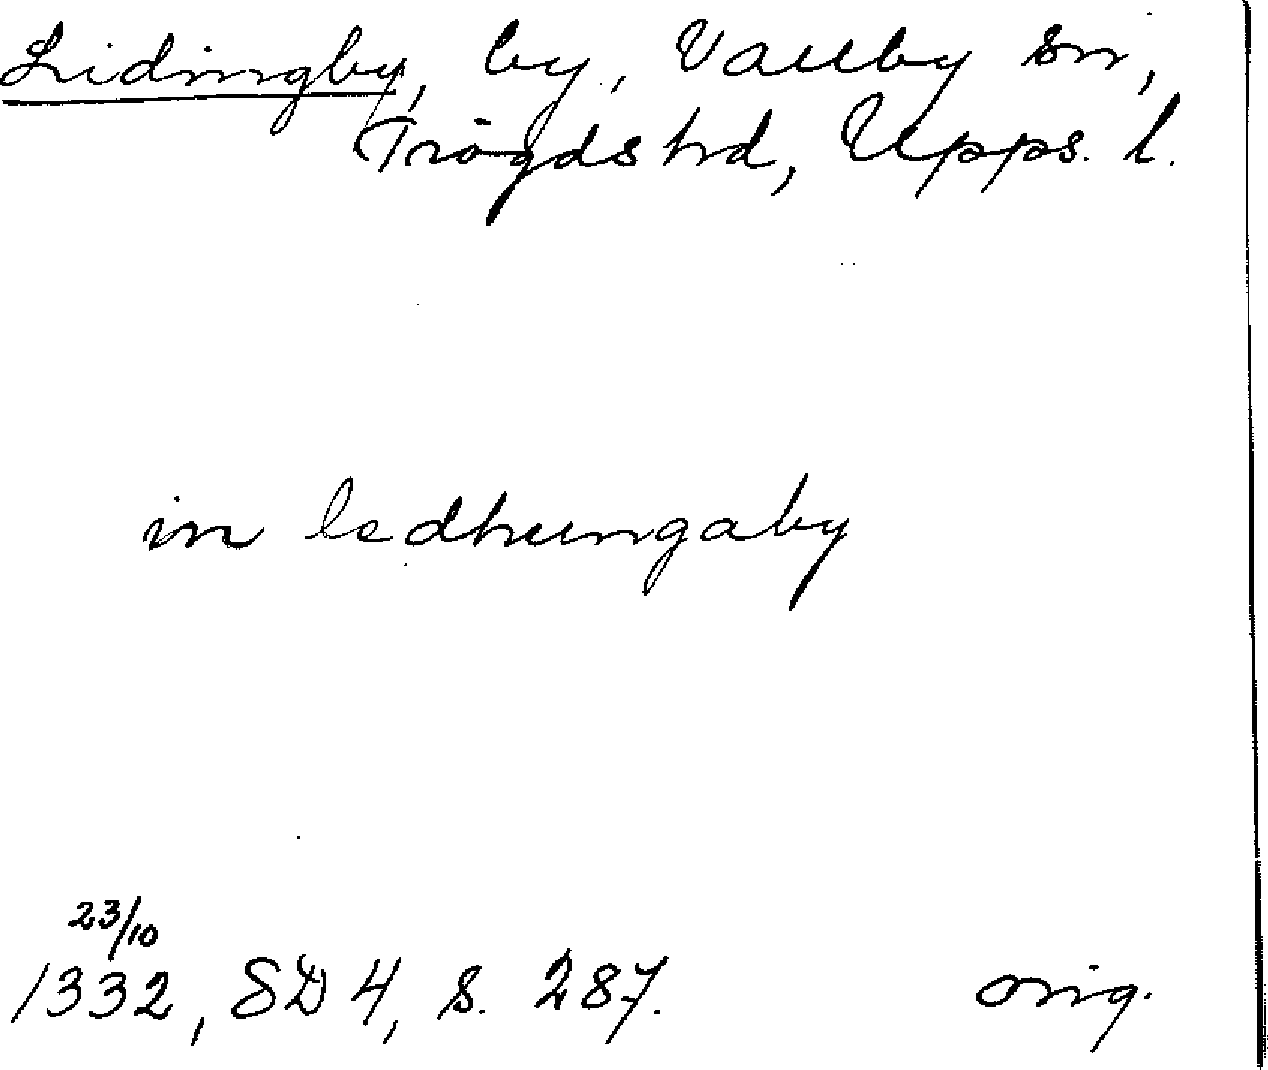 Lidingby, by, Vallby sn,
Trögds hd, Upps. l.
in ledhungaby
23/10
1332, SD 4, s. 287.
orig.